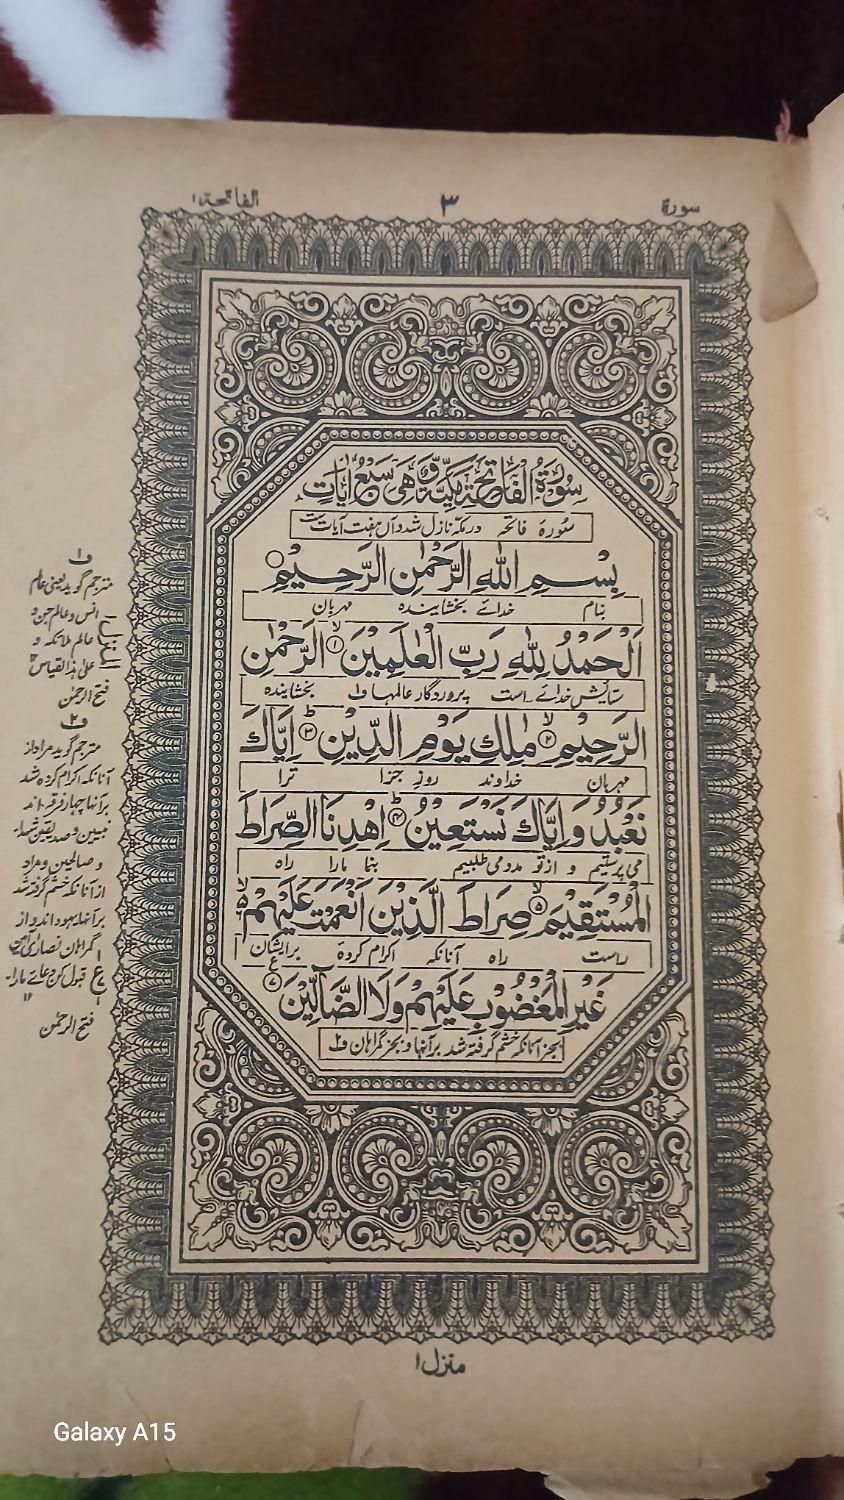 سورة ٣ الفاتحة ١
سُوْرَةُ الْفَاتِحَةِ مَكِّيَّةٌ وَّهِيَ سَبْعُ اٰيَاتٍ
سُورۂ فاتحہ در مکہ نازل شد و آں ہفت آیات ست
بِسْمِ اللهِ الرَّحْمٰنِ الرَّحِيْمِ
بنام خدائے بخشایندہ مہربان
اَلْحَمْدُ لِلّٰهِ رَبِّ الْعٰلَمِيْنَ ۙ۱ الرَّحْمٰنِ
ستایش خدائے است پروردگار عالمہا ف۱ بخشایندہ
الرَّحِيْمِ ۙ۲ مٰلِكِ يَوْمِ الدِّيْنِ ؕ۳ اِيَّاكَ
مہربان خداوند روز جزا ترا
نَعْبُدُ وَاِيَّاكَ نَسْتَعِيْنُ ؕ۴ اِهْدِنَا الصِّرَاطَ
می پرستیم و از تو مدد می طلبیم بنما مارا راہ
الْمُسْتَقِيْمَ ۙ۵ صِرَاطَ الَّذِيْنَ اَنْعَمْتَ عَلَيْهِمْ ۙ۶
راست راہ آنانکہ اکرام کردۂ برایشان
غَيْرِ الْمَغْضُوْبِ عَلَيْهِمْ وَلَا الضَّآلِّيْنَ ۷ ع
بجز آنانکہ خشم گرفتہ شد برآنہا و بجز گمراہان ف۲
ف۱
مترجم گوید یعنی عالم
انس و عالم جن و
عالم ملائکہ و
علیٰ ہذا القیاس ۱۲
فتح الرحمٰن
ف۲
مترجم گوید مراد از
آنانکہ اکرام کردہ شد
برآنہا چہار فرقہ اند
نبیین و صدیقین و شہدا
و صالحین و مراد
از آنانکہ خشم گرفتہ شد
برآنہا یہود اند و از
گمراہان نصاریٰ
قبول کن دعائے مارا
۱۲
فتح الرحمٰن
ع
منزل ۱
Galaxy A15